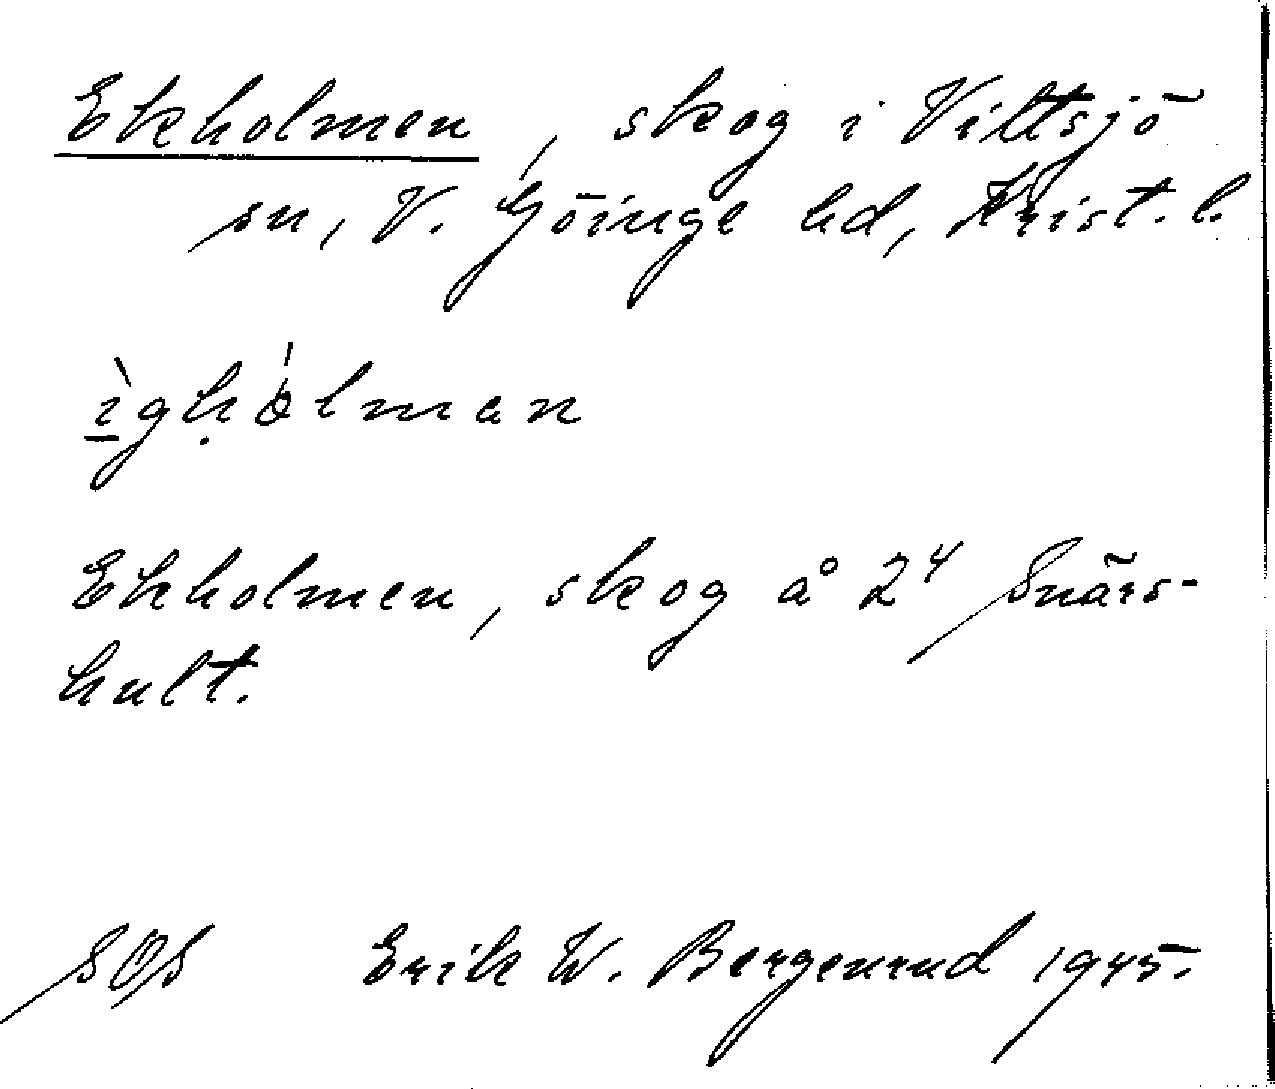 Ekholmen, skog i Vittsjö
sn, V. Göinge hd, Krist. l.
ìgḥólman
Ekholmen, skog å 2⁴ Snärs-
hult.
SOS Erik W. Bergenrud 1945.